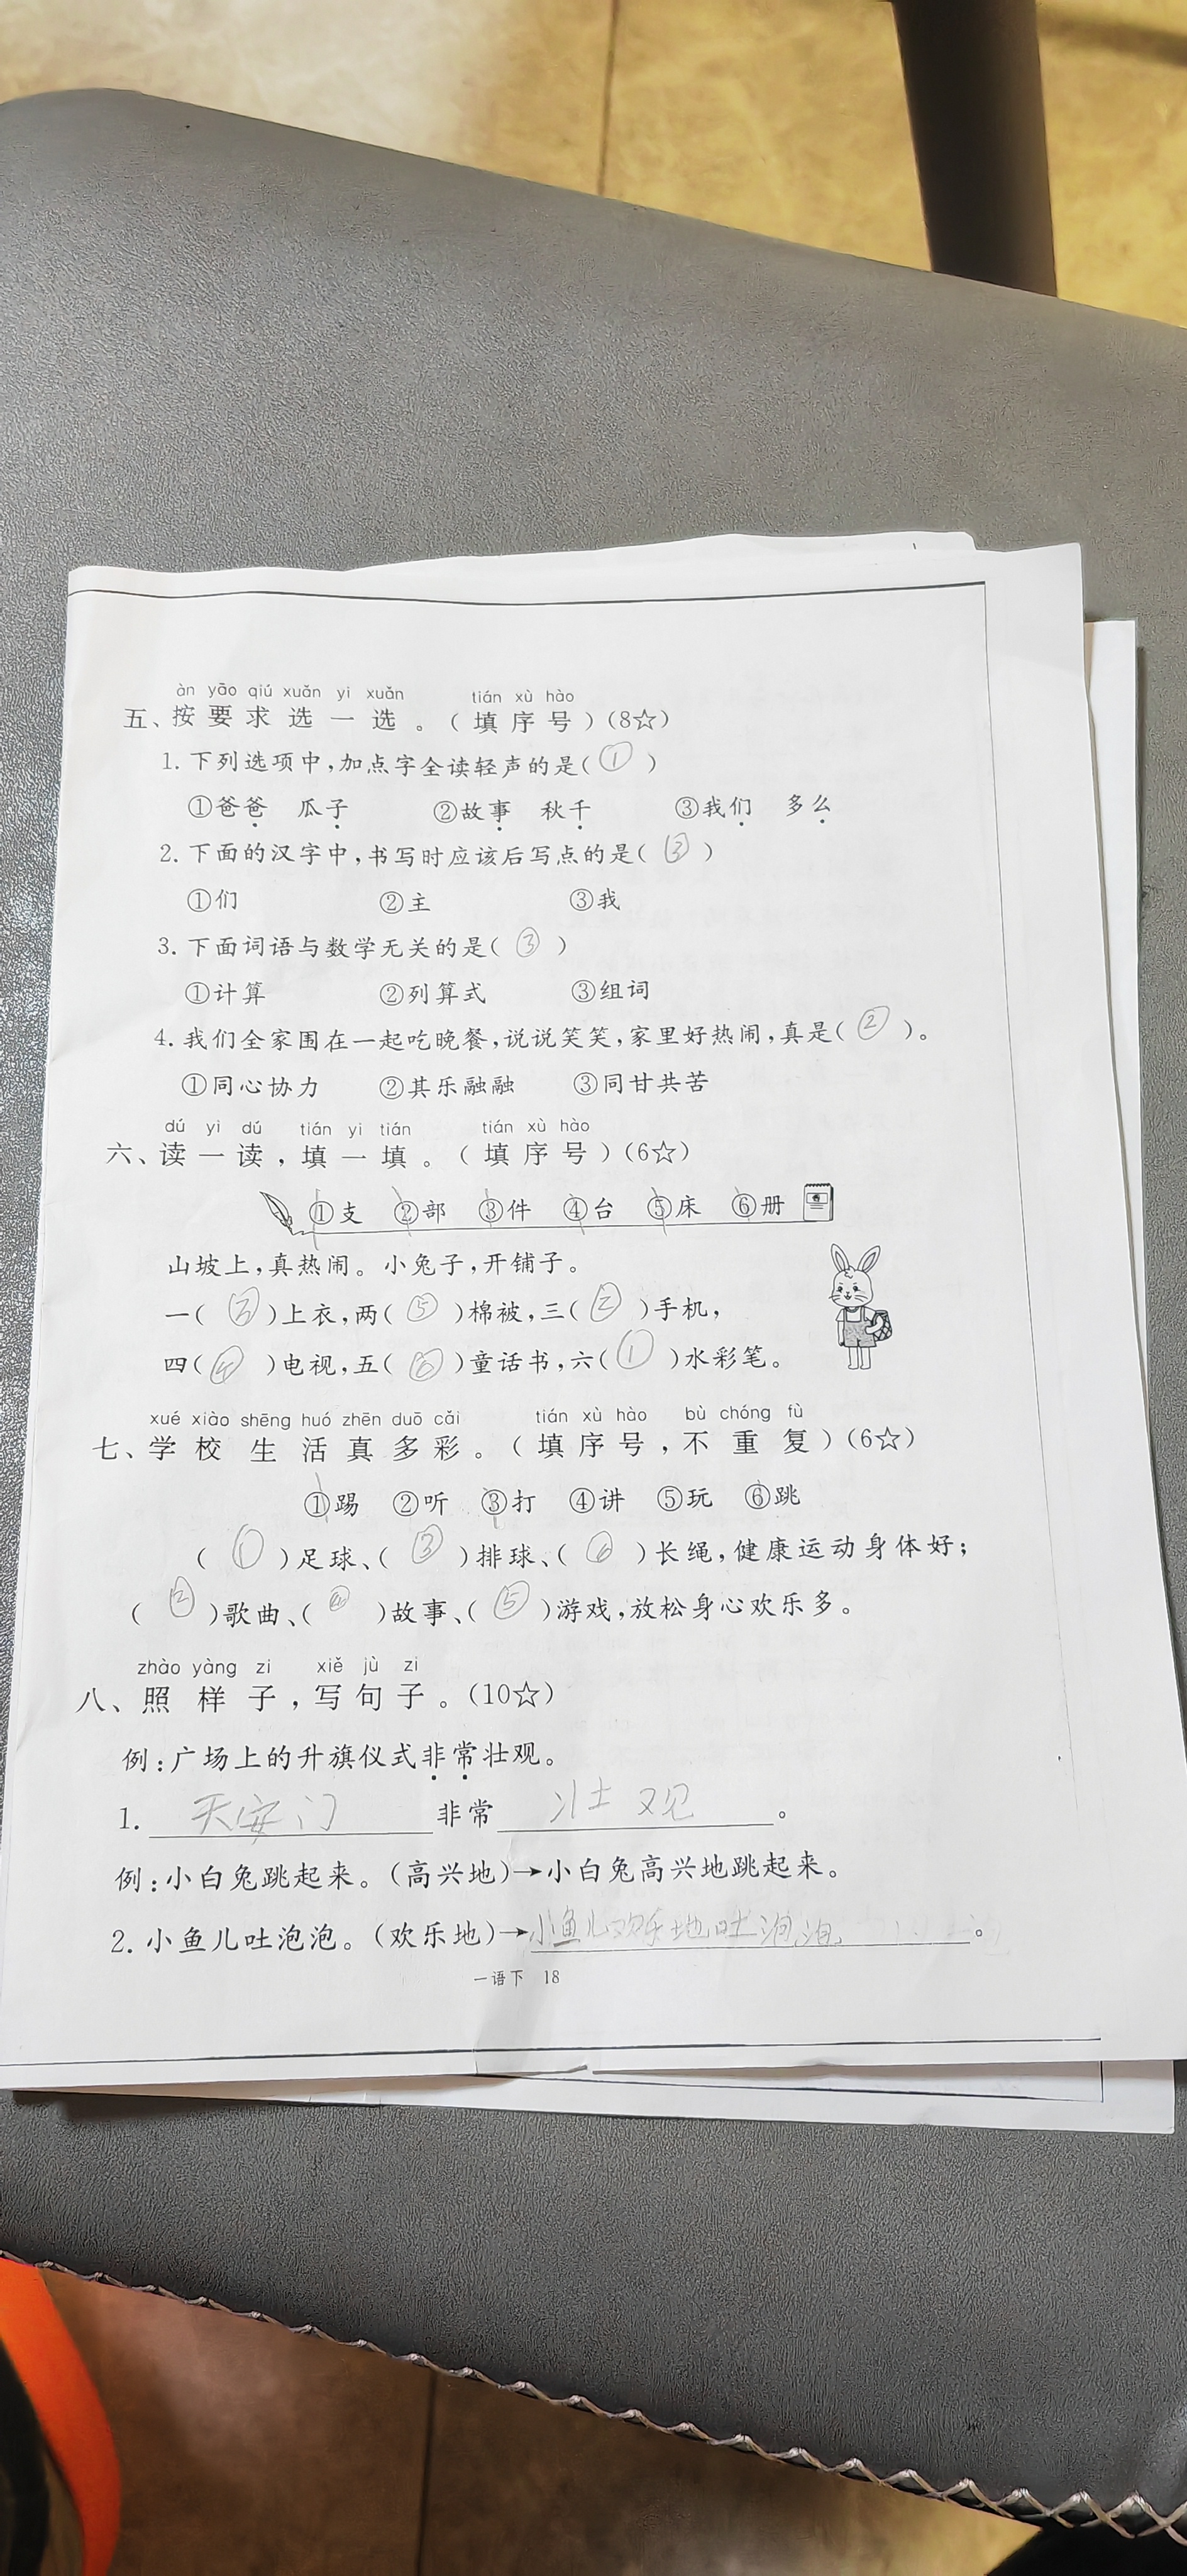 àn yāo qiú xuǎn yi xuǎn tián xù hào
五、按要求选一选。(填序号)(8☆)
1. 下列选项中,加点字全读轻声的是(①)
①爸爸 瓜子 ②故事 秋千 ③我们 多么
2. 下面的汉字中,书写时应该后写点的是(③)
①们 ②主 ③我
3. 下面词语与数学无关的是(③)
①计算 ②列算式 ③组词
4. 我们全家围在一起吃晚餐,说说笑笑,家里好热闹,真是(②)。
①同心协力 ②其乐融融 ③同甘共苦
dú yi dú tián yi tián tián xù hào
六、读一读,填一填。(填序号)(6☆)
①支 ②部 ③件 ④台 ⑤床 ⑥册
山坡上,真热闹。小兔子,开铺子。
一(③)上衣,两(⑤)棉被,三(②)手机,
四(④)电视,五(⑥)童话书,六(①)水彩笔。
xué xiào shēng huó zhēn duō cǎi tián xù hào bù chóng fù
七、学校生活真多彩。(填序号,不重复)(6☆)
①踢 ②听 ③打 ④讲 ⑤玩 ⑥跳
(①)足球、(③)排球、(⑥)长绳,健康运动身体好;
(②)歌曲、(④)故事、(⑤)游戏,放松身心欢乐多。
zhào yàng zi xiě jù zi
八、照样子,写句子。(10☆)
例:广场上的升旗仪式非常壮观。
1. 天安门非常壮观。
例:小白兔跳起来。(高兴地)→小白兔高兴地跳起来。
2. 小鱼儿吐泡泡。(欢乐地)→小鱼儿欢乐地吐泡泡。
一语下 18